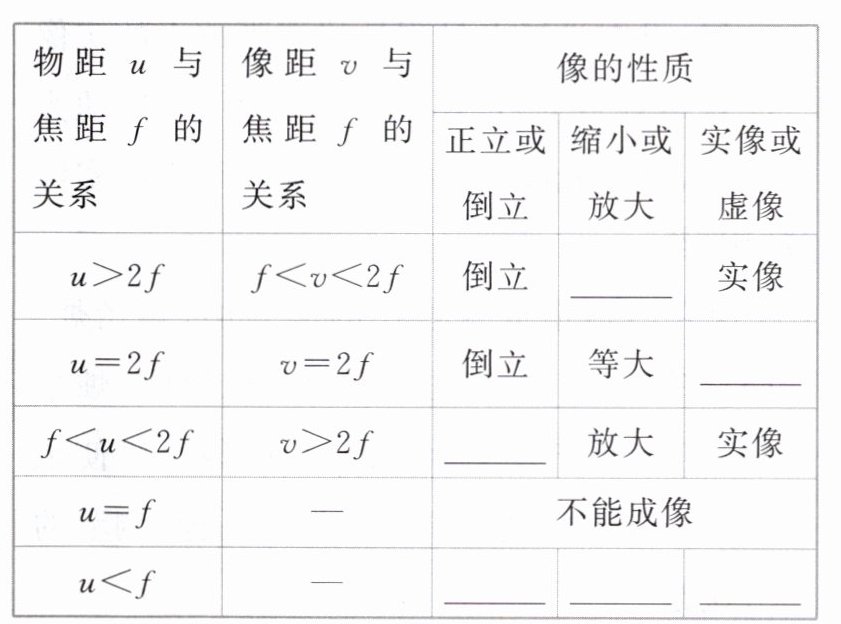 物距 u 与焦距 f 的关系 像距 v 与焦距 f 的关系 像的性质
正立或倒立 缩小或放大 实像或虚像
u>2f f<v<2f 倒立 ______ 实像
u=2f v=2f 倒立 等大 ______
f<u<2f v>2f ______ 放大 实像
u=f — 不能成像
u<f — ______ ______ ______